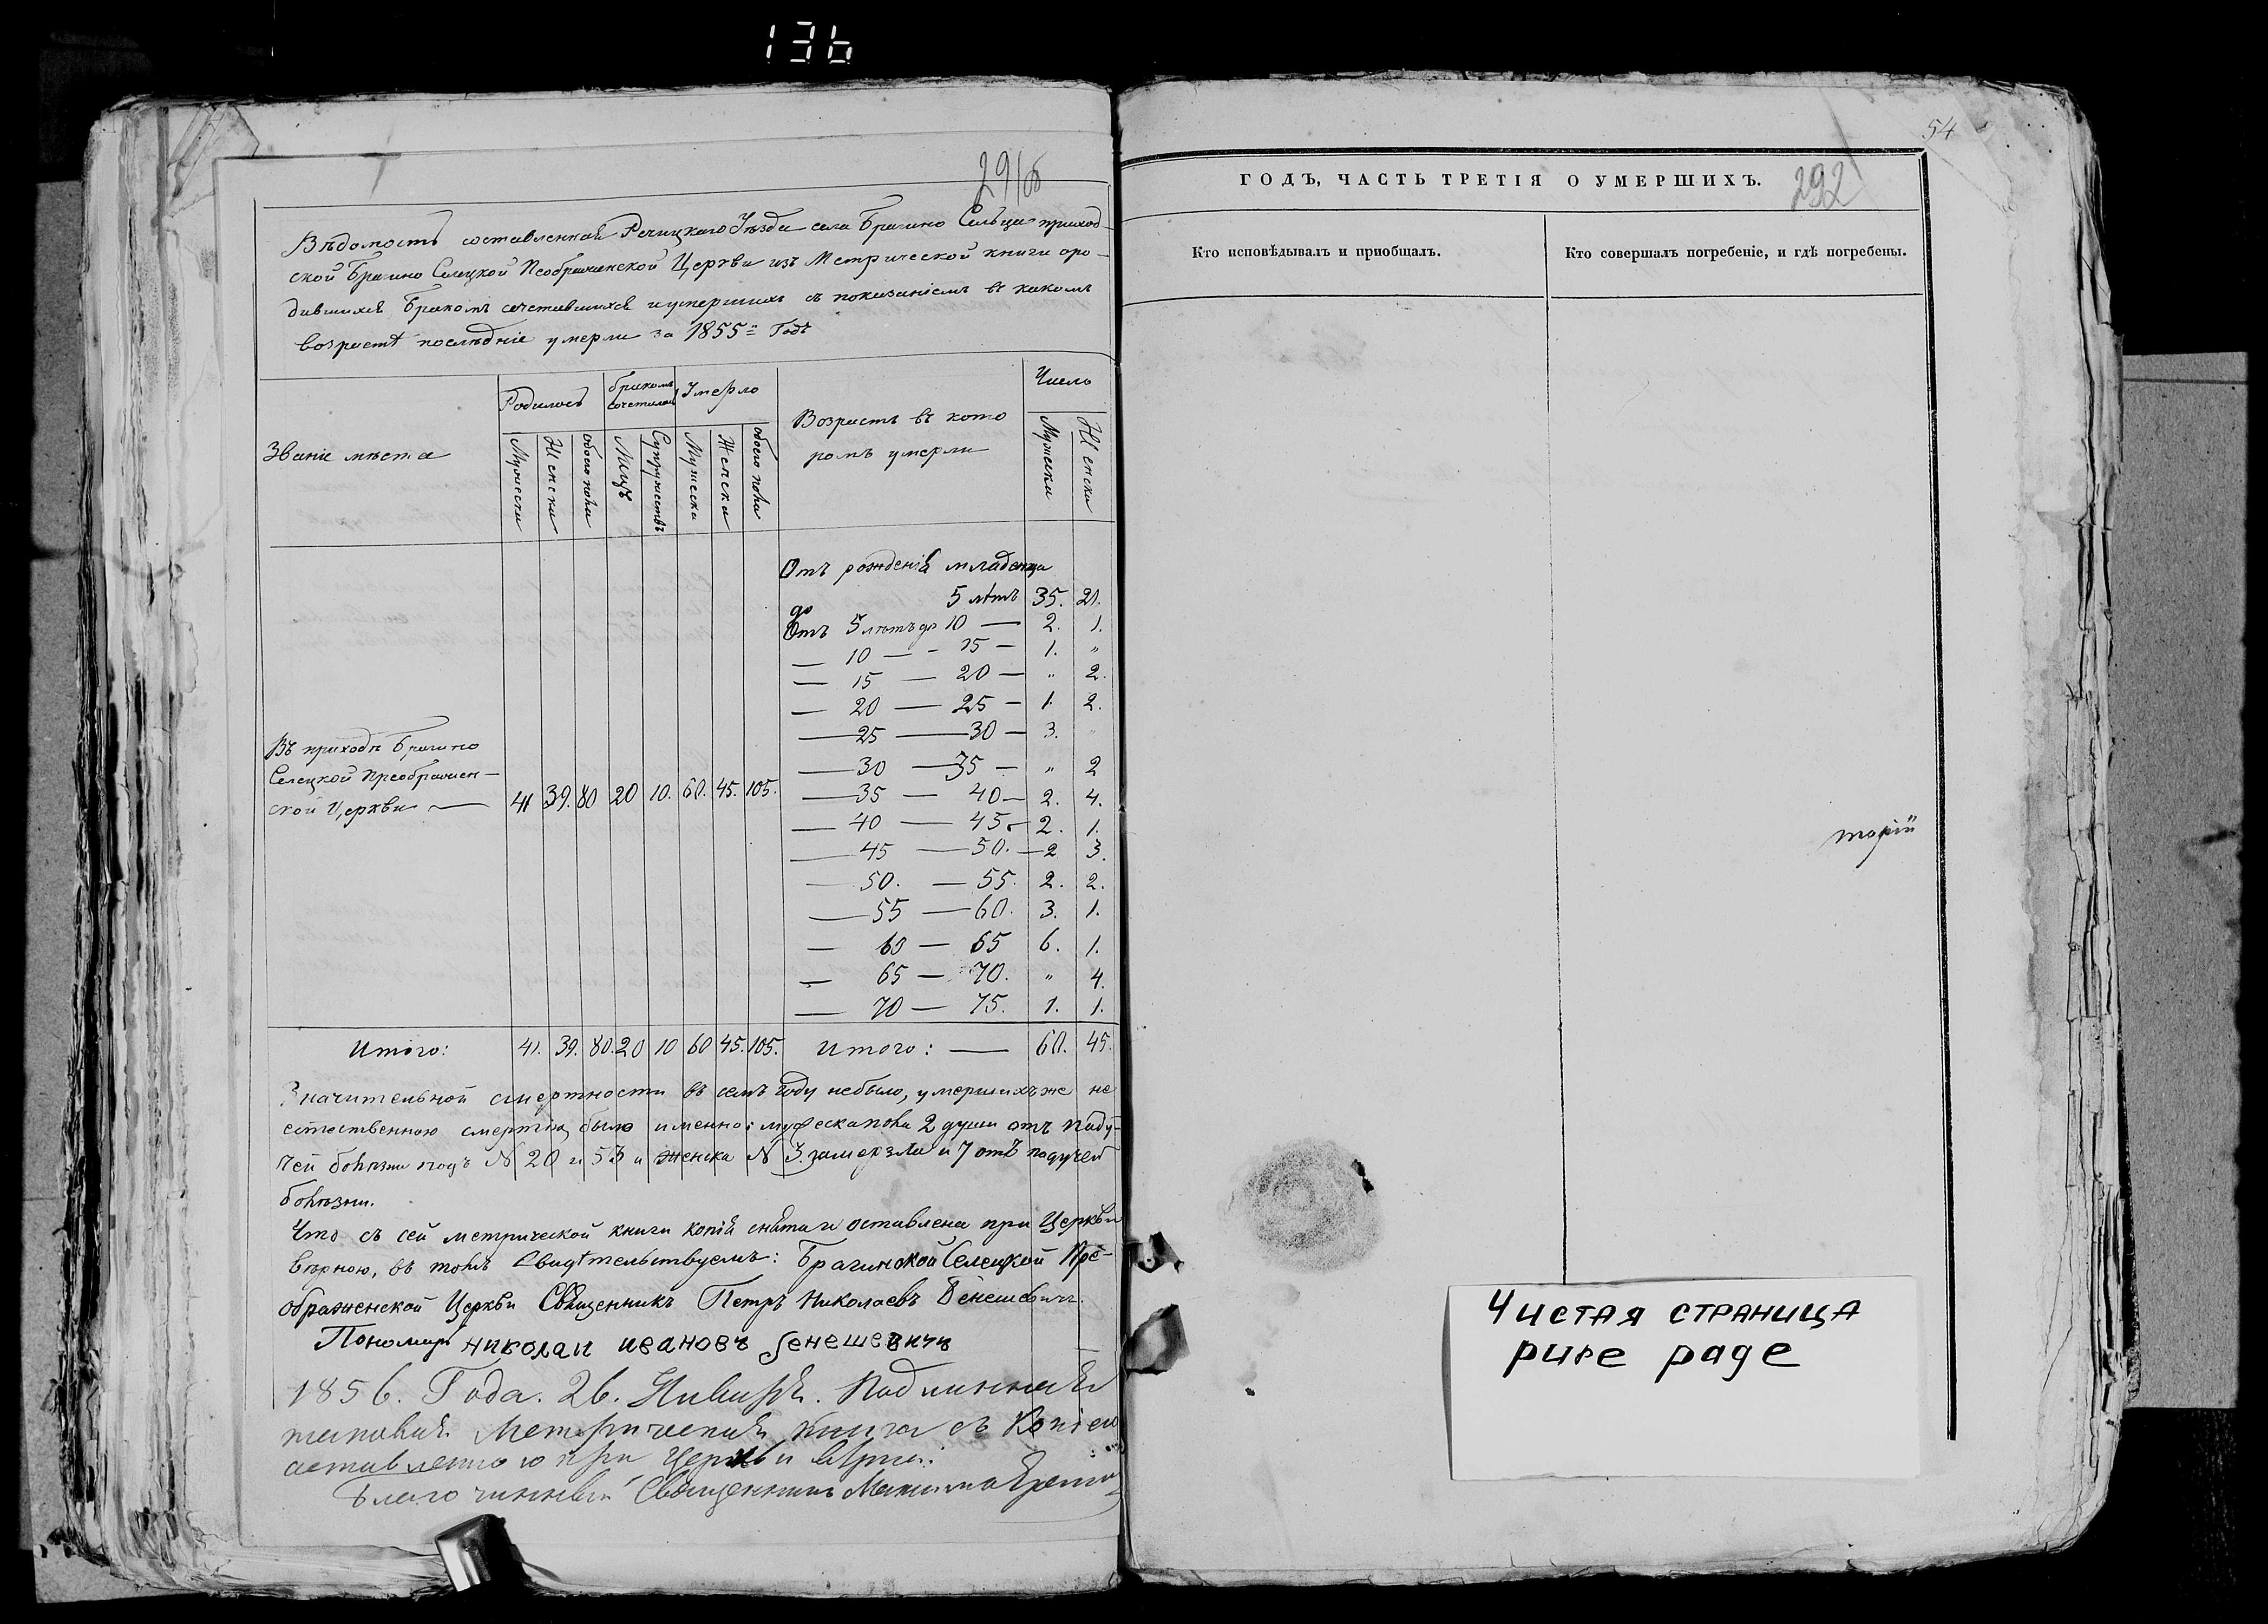 136
291об
Вѣдомость составленная Речицкаго Уѣзда села Брагино Сельца приход-
ской Брагино Селецкой Преображенской Церкви изъ Метрической книги оро-
дившихся бракомъ сочетавшихся иумершихъ съ показаніемъ въ какомъ
возрастѣ послѣдніе умерли за 1855й Годъ
Званіе мѣста
Родилось
бракомъ сочетались
Умерло
Возрастъ въ кото
ромъ умерли
Число
Мужески
Женски
обоего пола
Лицъ
Супружествъ
Мужеска
Женска
обоего пола
Мужески
Женски
Отъ рожденія младенца
до 5 лѣтъ 35. 21.
Отъ 5 лѣтъ до 10 — 2. 1.
— 10 — - 15 — 1. "
— 15 — 20 — " 2.
— 20 — 25 — 1. 2.
— 25 — 30 — 3. "
— 30 — 35 — " 2
— 35 — 40 — 2. 4.
— 40 — 45 — 2. 1.
— 45 — 50. — 2 3.
— 50. — 55. 2. 2.
— 55 — 60. 3. 1.
— 60 — 65 6. 1.
— 65 — 70. " 4.
— 70 — 75. 1. 1.
Въ приходѣ Брагино
Селецкой Преображен-
ской Церкви — 41 39. 80 20 10. 60. 45. 105.
Итого: 41. 39. 80. 20 10 60 45. 105. Итого: — 60. 45.
Значительной смертности въ семъ году небыло, умершихъ же не
естественною смертію было именно: мужеска пола 2 души отъ паду-
чей болѣзни подъ N 20 и 53 и женска N 3. замерзла и 7 отъ падучей
болѣзни.
Что съ сей метрической книги копія снята и оставлена при Церкви
вѣрною, въ томъ Свидѣтельствуемъ: Брагинской Селецкой Пре-
ображенской Церкви Священникъ Петръ Николаевъ Генешевичъ.
Пономарь Николай Ивановъ Генешевичъ
1856. Года. 26. Января. Подлинная
таковая Метрическая книга съ Копіею
оставленною при Церкви вѣрна.
Благочинный Священникъ
54
ГОДЪ, ЧАСТЬ ТРЕТІЯ О УМЕРШИХЪ.
292
Кто исповѣдывалъ и пріобщалъ.
Кто совершалъ погребеніе, и гдѣ погребены.
торіи
Чистая страница
pure page